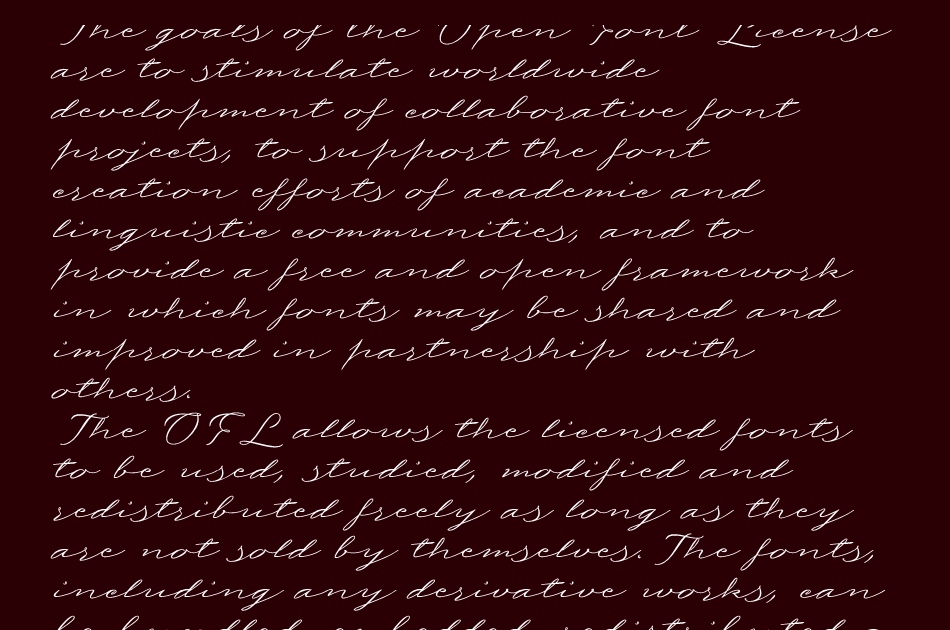 The goals of the Open Font License
are to stimulate worldwide
development of collaborative font
projects, to support the font
creation efforts of academic and
linguistic communities, and to
provide a free and open framework
in which fonts may be shared and
improved in partnership with
others.
The OFL allows the licensed fonts
to be used, studied, modified and
redistributed freely as long as they
are not sold by themselves. The fonts,
including any derivative works, can
be bundled, embedded, redistributed